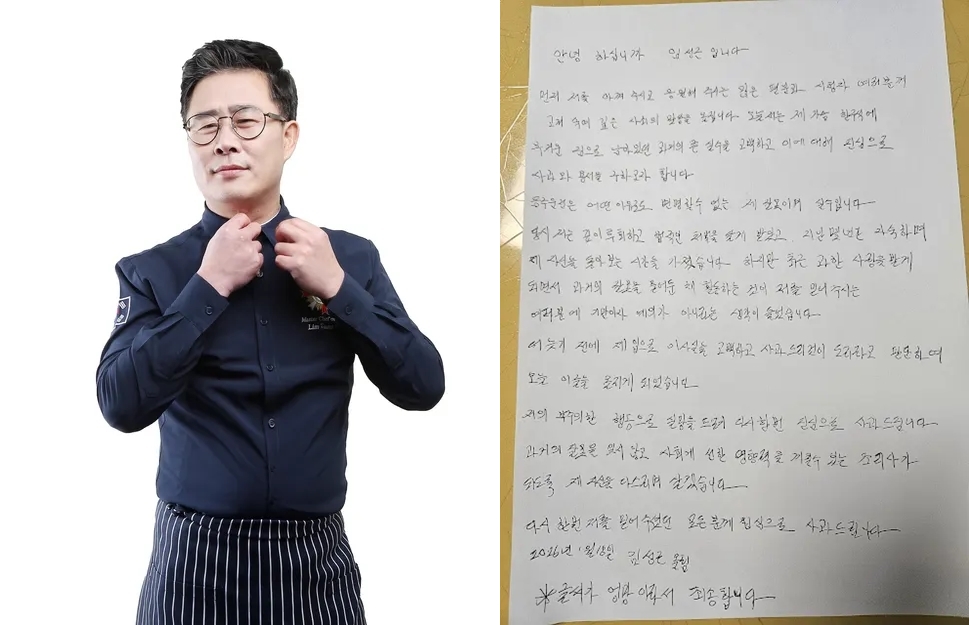 Master Chef
안녕 하십니까 임성근 입니다
먼저 저를 아껴 주시고 응원해 주시는 많은 팬분과 시청자 여러분께
고개 숙여 깊은 사죄의 말씀을 드립니다 오늘 저는 제 가슴 한구석에
무거운 짐으로 남아있던 과거의 큰 실수를 고백하고 이에 대해 진심으로
사과와 용서를 구하고자 합니다
음주운전은 어떤 이유로도 변명할수 없는 제 잘못이며 실수입니다
당시 저는 깊이 후회하고 법적인 처벌을 달게 받았고, 지난 몇년간 자숙하며
제 자신을 돌아보는 시간을 가졌습니다 하지만 최근 과한 사랑을 받게
되면서 과거의 잘못을 묻어둔 채 활동하는 것이 저를 믿어주시는
여러분에 기만이자 예의가 아니라는 생각이 들었습니다
더 늦기 전에 제 입으로 이사실을 고백하고 사과드리는것이 도리라고 판단하여
오늘 이글을 올리게 되었습니다
저의 부주의한 행동으로 실망을 드려 다시한번 진심으로 사과드립니다
과거의 잘못을 잊지 않고 사회에 선한 영향력을 끼칠수 있는 조리사가
되도록 제 자신을 다스리며 살겠습니다
다시 한번 저를 믿어 주셨던 모든분께 진심으로 사과드립니다
2026년 1월 임성근 올림
※글씨가 엉망 이라서 죄송합니다